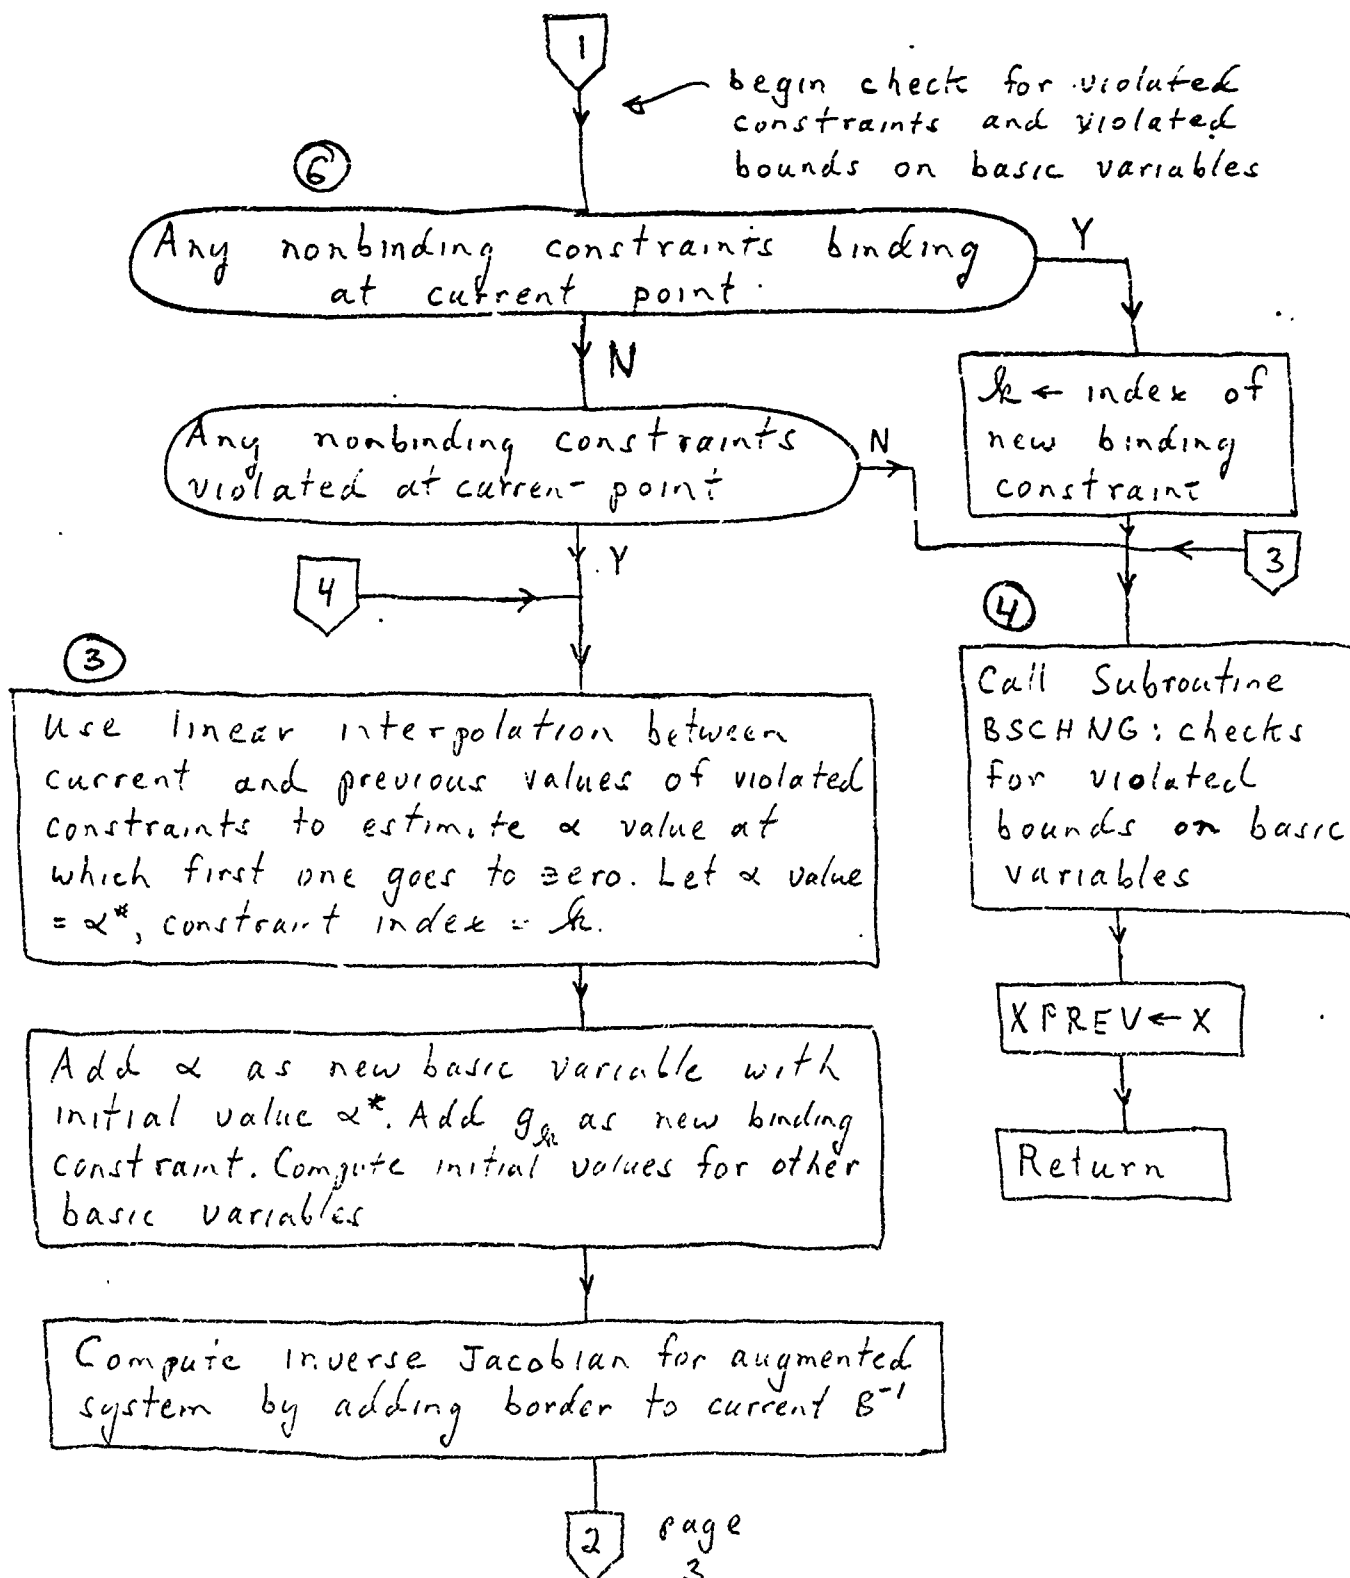 1
begin check for violated
constraints and violated
bounds on basic variables
6
Any nonbinding constraints binding
at current point.
Y
N
k ← index of
new binding
constraint
Any nonbinding constraints
violated at current point
N
Y
4
3
3
4
Use linear interpolation between
current and previous values of violated
constraints to estimate α value at
which first one goes to zero. Let α value
= α*, constraint index = k.
Call Subroutine
BSCHNG: checks
for violated
bounds on basic
variables
XPREV ← X
Return
Add α as new basic variable with
initial value α*. Add gₖ as new binding
constraint. Compute initial values for other
basic variables
Compute inverse Jacobian for augmented
system by adding border to current B⁻¹
2
page
3